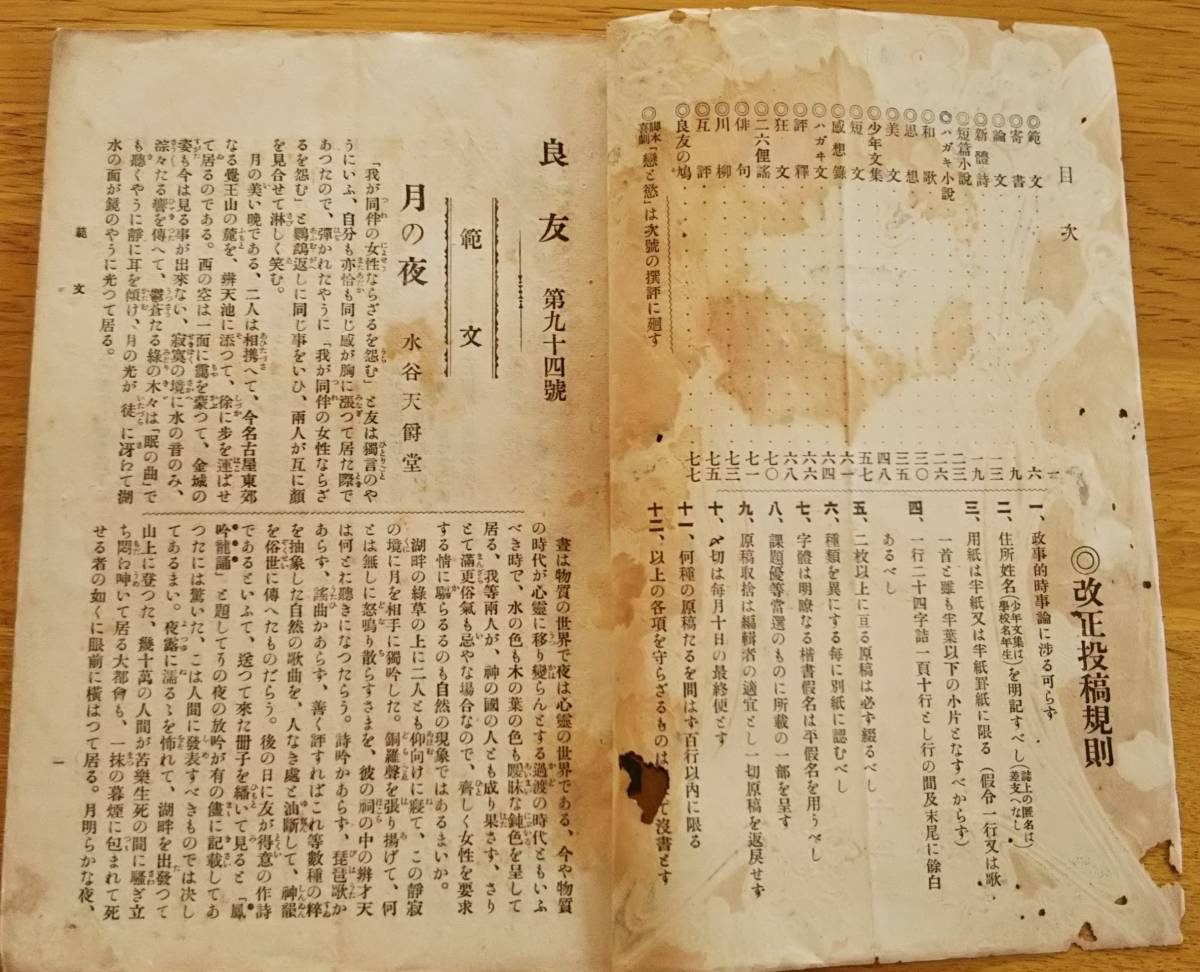 目次
◎範文
一
◎寄書
六
◎論文
九
◎新體詩
一三
◎短篇小說
一九
◎ハガキ小說
二三
◎和歌
二六
◎思想
三〇
◎美文
三五
◎少年文集
四八
◎短文
五七
◎感想錄
六一
◎ハガキ文
六四
◎評釋
六六
◎狂文
六八
◎二六俚謠
七〇
◎俳句
七一
◎川柳
七三
◎互評
七五
◎良友の鳩
七七
◎脚本喜劇「戀と慾」は次號の撰評に廻す
◎改正投稿規則
一、政事的時事論に涉る可らず
二、住所姓名(少年文集は學校名年生)を明記すべし(誌上の匿名は差支へなし)
三、用紙は半紙又は半紙罫紙に限る(假令一行又は歌
一首と雖も半葉以下の小片となすべからず)
四、一行二十四字詰一頁十行とし行の間及末尾に餘白
あるべし
五、二枚以上に亘る原稿は必ず綴るべし
六、種類を異にする每に別紙に認むべし
七、字體は明瞭なる楷書假名は平假名を用うべし
八、課題優等當選のものに所載の一部を呈す
九、原稿取捨は編輯者の適宜とし一切原稿を返戾せず
十、〆切は每月十日の最終便とす
十一、何種の原稿たるを問はず百行以內に限る
十二、以上の各項を守らざるものは て沒書とす
良友 第九十四號
範文
月の夜 水谷天爵堂
「我が同伴の女性ならざるを怨む」と友は獨言のや
うにいふ、自分も亦恰も同じ感が胸に漲つて居た際で
あつたので、彈かれたやうに「我が同伴の女性ならざ
るを怨む」と鸚鵡返しに同じ事をいひ、兩人が互に顏
を見合せて淋しく笑む。
月の美い晚である、二人は相携へて、今名古屋東郊
なる覺王山の麓を、辨天池に添つて、徐に步を運ばせ
て居るのである。西の空は一面に靄を蒙つて、金城の
姿も今は見る事が出來ない、寂寞の境に水の音のみ、
淙々たる響を傳へて、鬱蒼たる綠の木々は「眠の曲」で
も聽くやうに靜に耳を傾け、月の光が徒に冴わて湖
水の面が鏡のやうに光つて居る。
晝は物質の世界で夜は心靈の世界である、今や物質
の時代が心靈に移り變らんとする過渡の時代ともいふ
べき時で、水の色も木の葉の色も曖昧な鈍色を呈して
居る、我等兩人が、神の國の人とも成り果さず、さり
とて滿更俗氣も忌やな場合なので、齊しく女性を要求
する情に驅らるるのも自然の現象ではあるまいか。
湖畔の綠草の上に二人とも仰向けに寢て、この靜寂
の境に月を相手に獨吟した。銅羅聲を張り揚げて、何
とは無しに怒鳴り散らすさまを、彼の祠の中の辨才天
は何とに聽きになつたらう。詩吟かあらず、琵琶歌か
あらず、謠曲かあらず、善く評すればこれ等數種の粹
を抽象した自然の歌曲を、人なき處と油斷して、神韻
を俗世に傳へたものだらう。後の日に友が得意の作詩
であるといふて、送つて來た册子を繙いて見ると「鳳
吟龍誦」と題してその夜の放吟が有の儘に記載してあ
つたには驚いた、こは人間に發表すべきものでは決し
てあるまい。夜露に濡るゝを怖れて、湖畔を出發つて
山上に登つた、幾十萬の人間が苦樂生死の間に騷ぎ立
ち悶わ呻いて居る大都會も、一抹の暮煙に包まれて死
せる者の如くに眼前に橫はつて居る。月明らかな夜、
範文
一